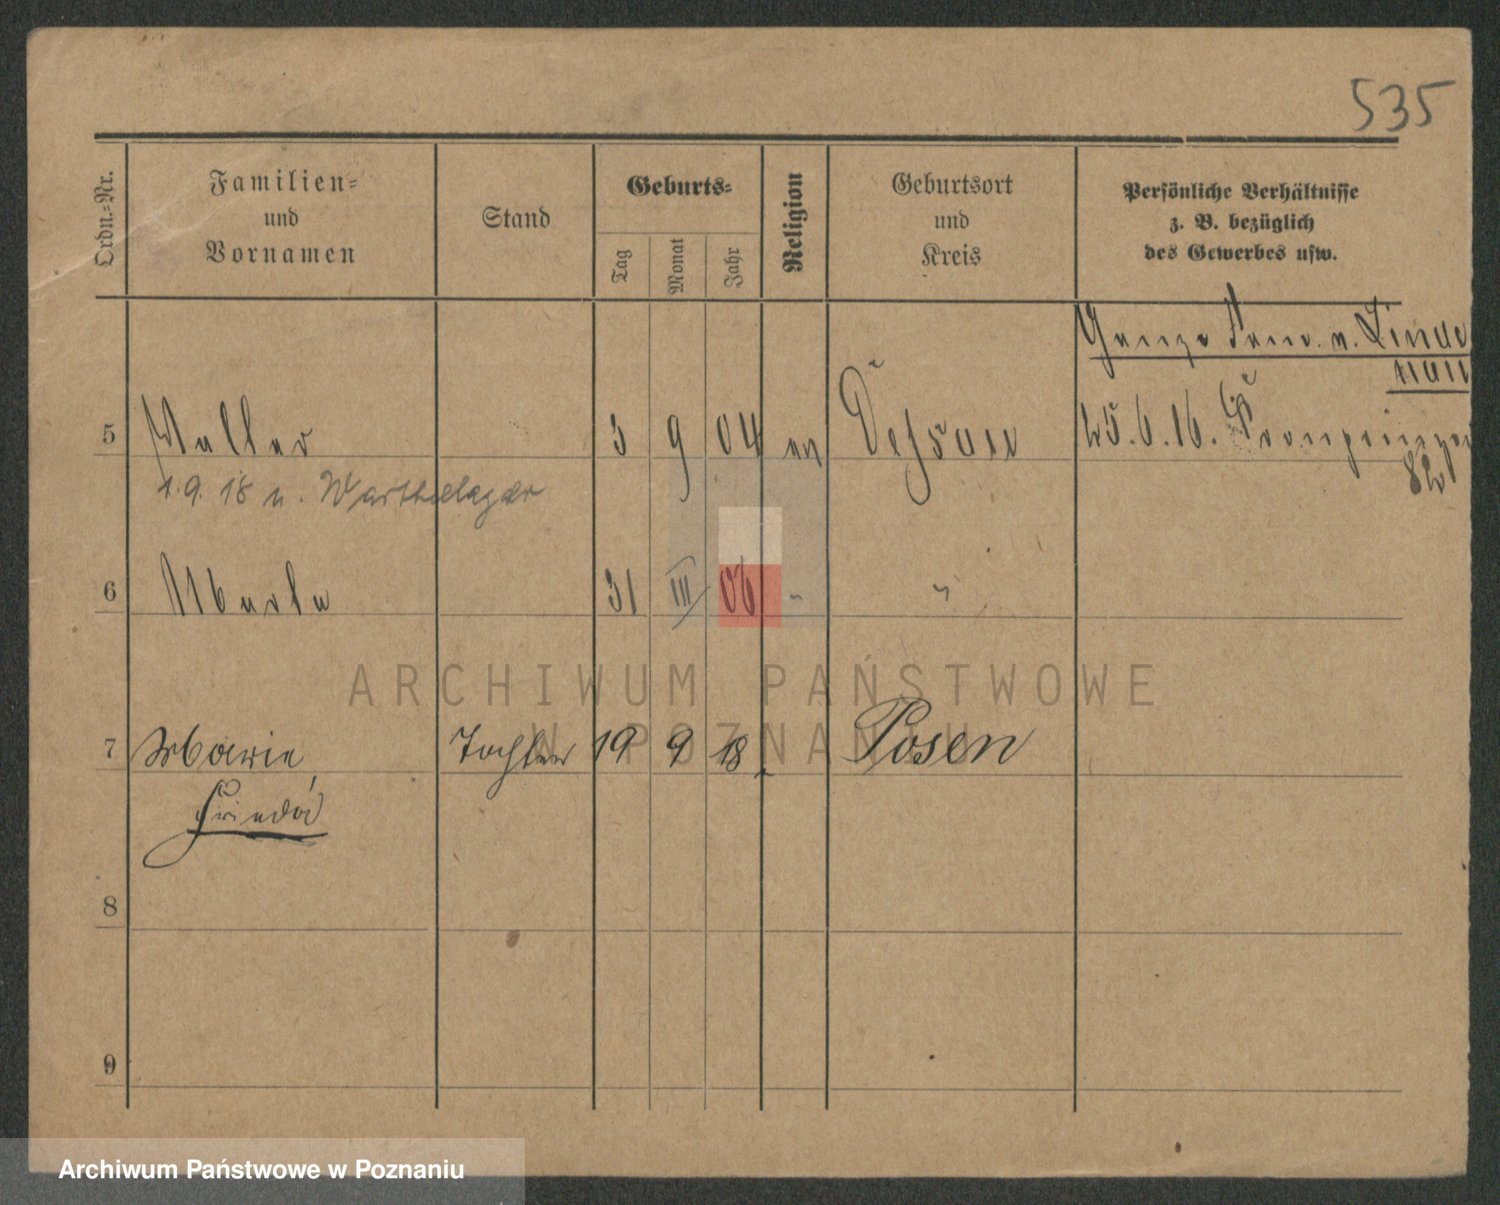 535
Ordn.-Nr.
Familien-
und
Vornamen
Stand
Geburts-
Tag
Monat
Jahr
Religion
Geburtsort
und
Kreis
Persönliche Verhältnisse
z. B. bezüglich
des Gewerbes usw.
Ganze Fam. n. Linde
nau
5 Walter 3 9 04 ev Dessau 25.6.16. Kronprinzen
82
1.9.18 n. Warthelager
6 31 III 06 " "
7 Marie Tochter 19 9 18 Posen
8
9
ARCHIWUM PAŃSTWOWE
W POZNANIU
Archiwum Państwowe w Poznaniu